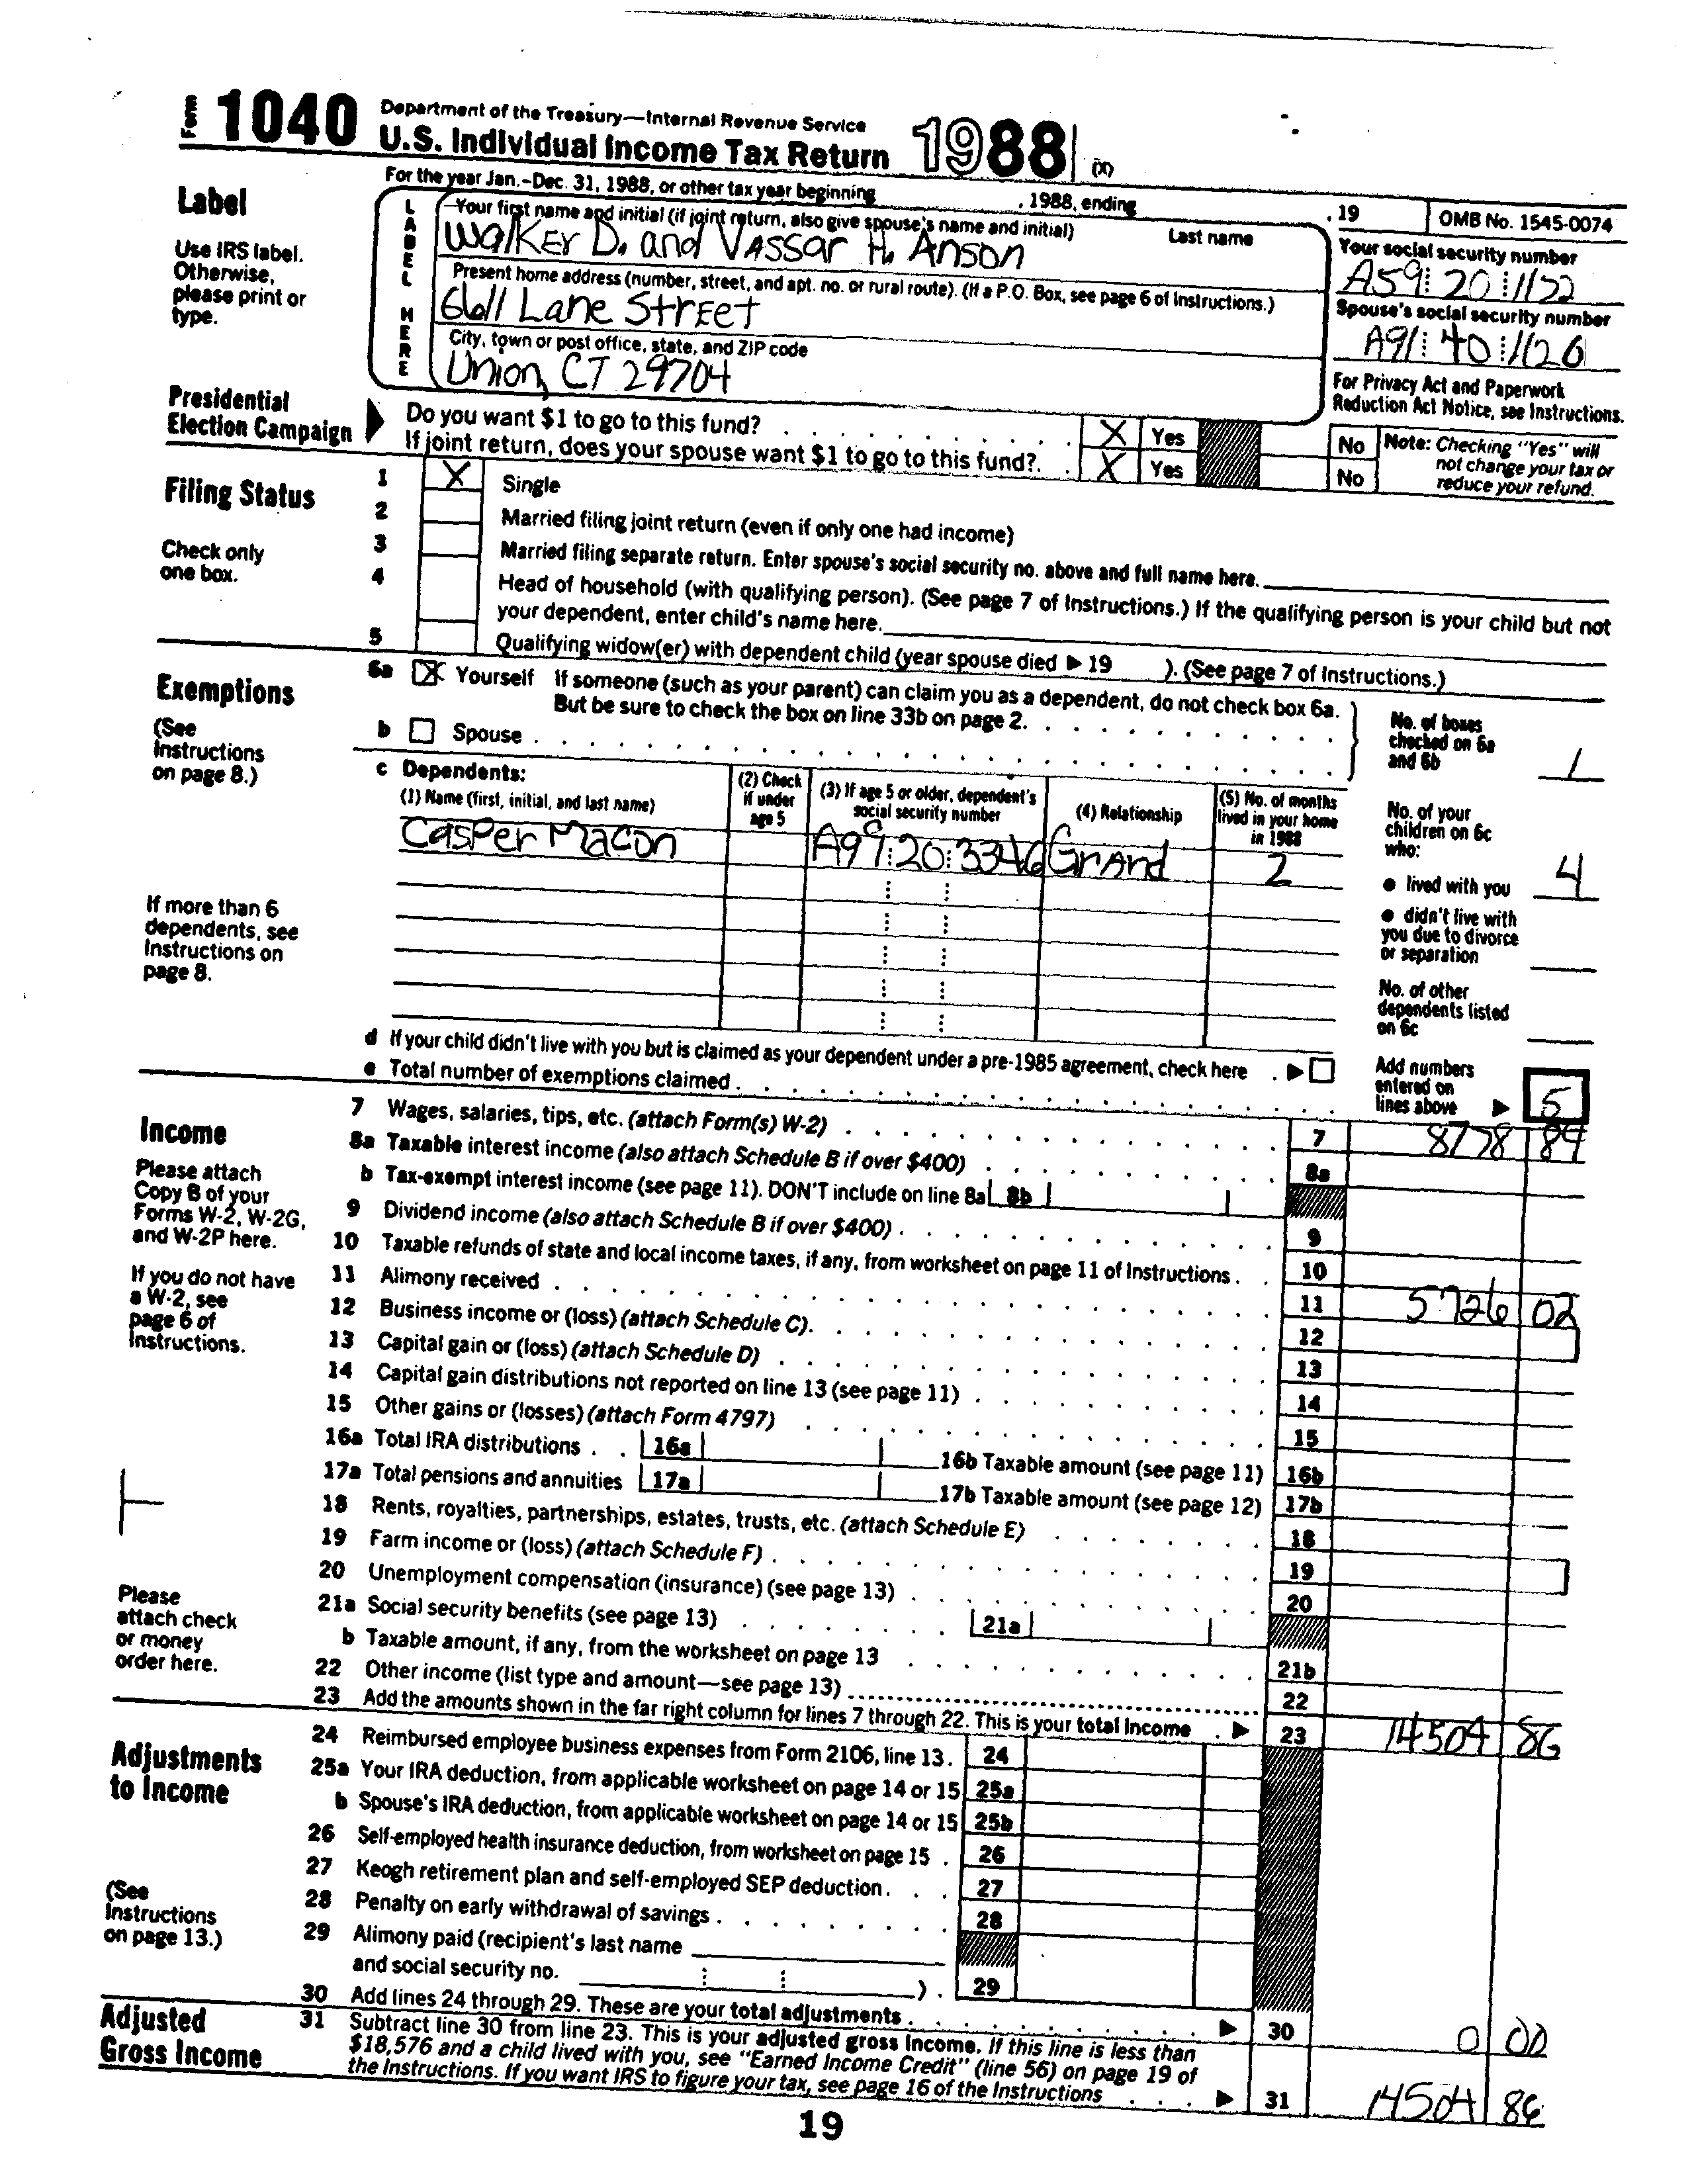 Form 1040 Department of the Treasury—Internal Revenue Service
U.S. Individual Income Tax Return 1988 (X)
For the year Jan.-Dec. 31, 1988, or other tax year beginning , 1988, ending , 19 OMB No. 1545-0074
Label
Use IRS label.
Otherwise,
please print or
type.
LABEL HERE
Your first name and initial (if joint return, also give spouse's name and initial) Last name
Walker D. and Vassar H. Anson
Your social security number
A59 20 1122
Present home address (number, street, and apt. no. or rural route). (If a P.O. Box, see page 6 of Instructions.)
6611 Lane Street
Spouse's social security number
A91 40 1126
City, town or post office, state, and ZIP code
Union, CT 29704
For Privacy Act and Paperwork
Reduction Act Notice, see Instructions.
Presidential
Election Campaign
Do you want $1 to go to this fund? X Yes No
If joint return, does your spouse want $1 to go to this fund? X Yes No
Note: Checking "Yes" will
not change your tax or
reduce your refund.
Filing Status
Check only
one box.
1 X Single
2 Married filing joint return (even if only one had income)
3 Married filing separate return. Enter spouse's social security no. above and full name here.
4 Head of household (with qualifying person). (See page 7 of Instructions.) If the qualifying person is your child but not
your dependent, enter child's name here.
5 Qualifying widow(er) with dependent child (year spouse died ▶ 19 ). (See page 7 of Instructions.)
Exemptions
(See
Instructions
on page 8.)
6a X Yourself If someone (such as your parent) can claim you as a dependent, do not check box 6a.
But be sure to check the box on line 33b on page 2.
b Spouse
No. of boxes
checked on 6a
and 6b 1
c Dependents:
(1) Name (first, initial, and last name)
(2) Check
if under
age 5
(3) If age 5 or older, dependent's
social security number
(4) Relationship
(5) No. of months
lived in your home
in 1988
Casper Macon A99 20 3346 Grand 2
No. of your
children on 6c
who:
● lived with you 4
● didn't live with
you due to divorce
or separation
No. of other
dependents listed
on 6c
If more than 6
dependents, see
Instructions on
page 8.
d If your child didn't live with you but is claimed as your dependent under a pre-1985 agreement, check here ▶
e Total number of exemptions claimed
Add numbers
entered on
lines above ▶ 5
Income
Please attach
Copy B of your
Forms W-2, W-2G,
and W-2P here.
If you do not have
a W-2, see
page 6 of
Instructions.
Please
attach check
or money
order here.
7 Wages, salaries, tips, etc. (attach Form(s) W-2) 7 8778 84
8a Taxable interest income (also attach Schedule B if over $400) 8a
b Tax-exempt interest income (see page 11). DON'T include on line 8a 8b
9 Dividend income (also attach Schedule B if over $400) 9
10 Taxable refunds of state and local income taxes, if any, from worksheet on page 11 of Instructions 10
11 Alimony received 11 5726 02
12 Business income or (loss) (attach Schedule C) 12
13 Capital gain or (loss) (attach Schedule D) 13
14 Capital gain distributions not reported on line 13 (see page 11) 14
15 Other gains or (losses) (attach Form 4797) 15
16a Total IRA distributions 16a 16b Taxable amount (see page 11) 16b
17a Total pensions and annuities 17a 17b Taxable amount (see page 12) 17b
18 Rents, royalties, partnerships, estates, trusts, etc. (attach Schedule E) 18
19 Farm income or (loss) (attach Schedule F) 19
20 Unemployment compensation (insurance) (see page 13) 20
21a Social security benefits (see page 13) 21a
b Taxable amount, if any, from the worksheet on page 13 21b
22 Other income (list type and amount—see page 13) 22
23 Add the amounts shown in the far right column for lines 7 through 22. This is your total income ▶ 23 14504 86
Adjustments
to Income
(See
Instructions
on page 13.)
24 Reimbursed employee business expenses from Form 2106, line 13. 24
25a Your IRA deduction, from applicable worksheet on page 14 or 15 25a
b Spouse's IRA deduction, from applicable worksheet on page 14 or 15 25b
26 Self-employed health insurance deduction, from worksheet on page 15 26
27 Keogh retirement plan and self-employed SEP deduction 27
28 Penalty on early withdrawal of savings 28
29 Alimony paid (recipient's last name
and social security no. ) 29
30 Add lines 24 through 29. These are your total adjustments ▶ 30 0 00
Adjusted
Gross Income
31 Subtract line 30 from line 23. This is your adjusted gross income. If this line is less than
$18,576 and a child lived with you, see "Earned Income Credit" (line 56) on page 19 of
the Instructions. If you want IRS to figure your tax, see page 16 of the Instructions ▶ 31 14504 86
19